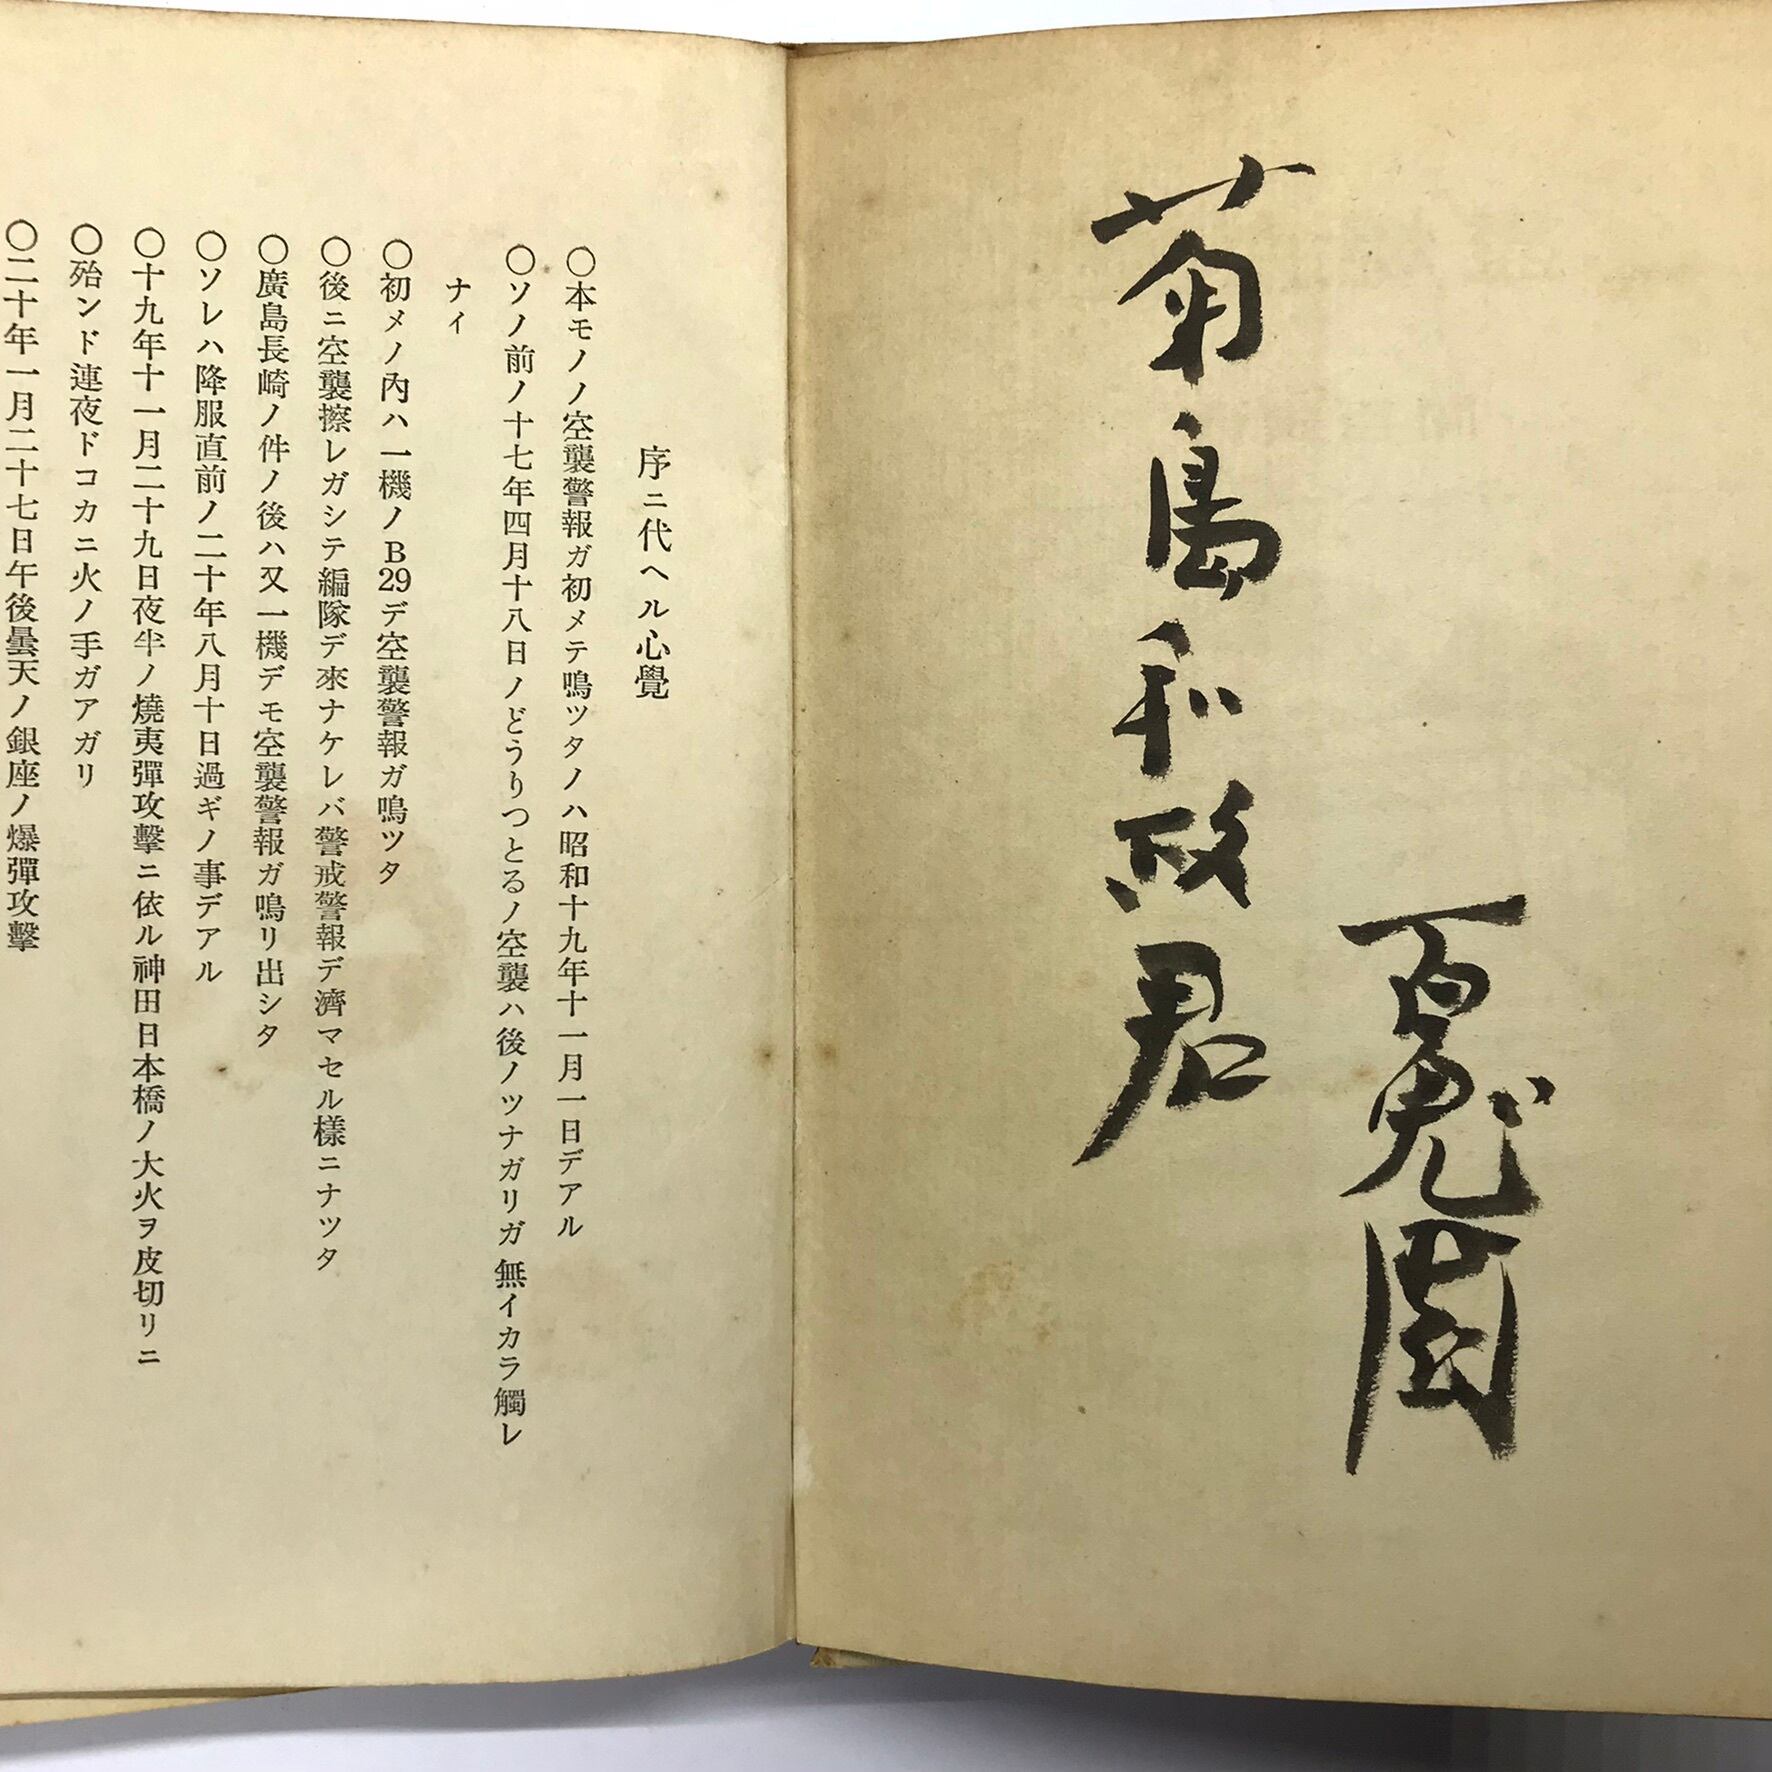 百鬼園
菊島和政君
序ニ代ヘル心覺
〇本モノノ空襲警報ガ初メテ鳴ツタノハ昭和十九年十一月一日デアル
〇ソノ前ノ十七年四月十八日ノどうりつとるノ空襲ハ後ノツナガリガ無イカラ觸レ
ナイ
〇初メノ内ハ一機ノB29デ空襲警報ガ鳴ツタ
〇後ニ空襲擦レガシテ編隊デ來ナケレバ警戒警報デ濟マセル様ニナツタ
〇廣島長崎ノ件ノ後ハ又一機デモ空襲警報ガ鳴リ出シタ
〇ソレハ降服直前ノ二十年八月十日過ギノ事デアル
〇十九年十一月二十九日夜半ノ燒夷彈攻擊ニ依ル神田日本橋ノ大火ヲ皮切リニ
〇殆ンド連夜ドコカニ火ノ手ガアガリ
〇二十年一月二十七日午後曇天ノ銀座ノ爆彈攻擊